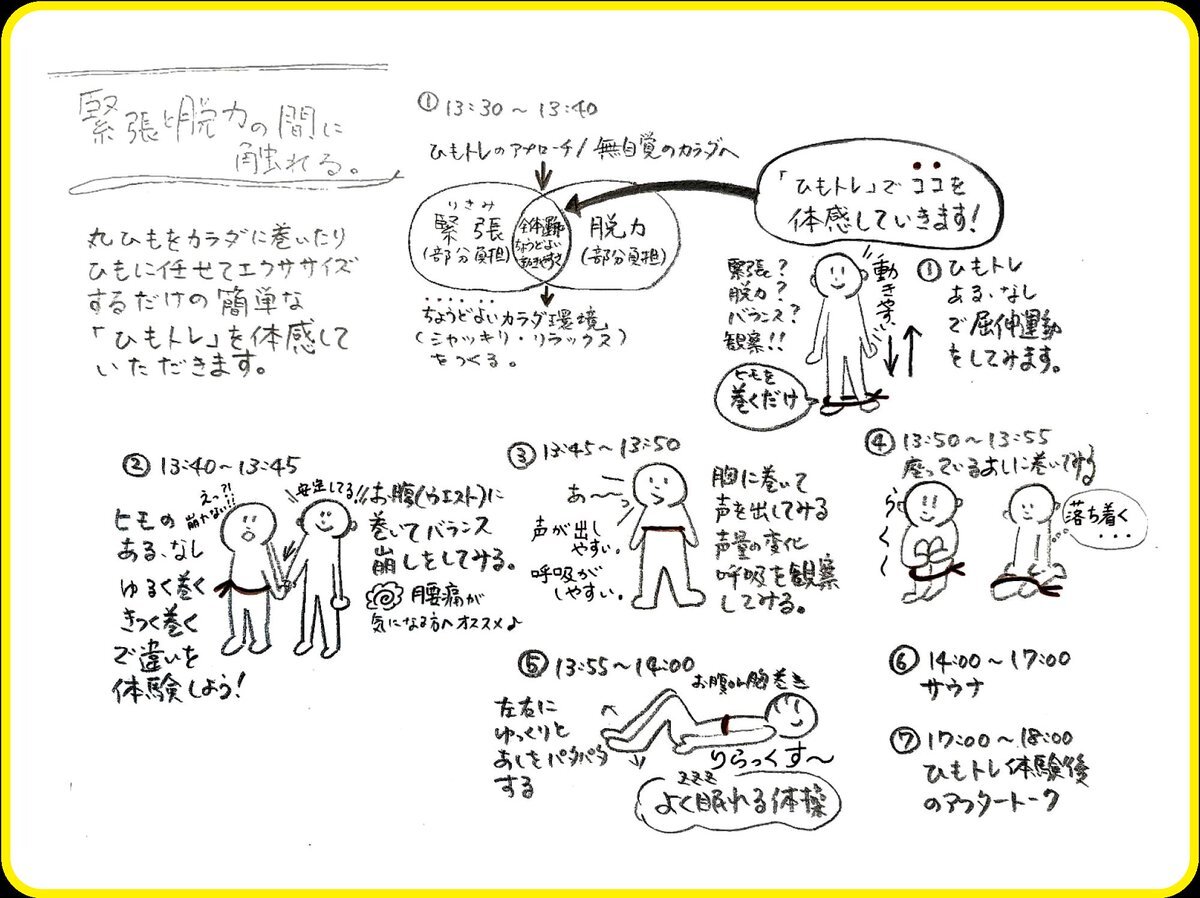 緊張と脱力の間に
触れる。
丸ひもをカラダに巻いたり
ひもに任せてエクササイズ
するだけの簡単な
「ひもトレ」を体感して
いただきます。
① 13:30〜13:40
ひもトレのアプローチ/無自覚のカラダへ
りきみ
緊張
(部分負担)
全体運動
ちょうどよい
脱力
(部分負担)
ちょうどよいカラダ環境
(シャッキリ・リラックス)
をつくる。
「ひもトレ」でココを
体感していきます!
緊張?
脱力?
バランス?
観察!!
ヒモを
巻くだけ
動きやすい
① ひもトレ
ある、なし
で屈伸運動
をしてみます。
② 13:40〜13:45
ヒモの
ある、なし
ゆるく巻く
きつく巻く
で違いを
体験しよう!
えっ?!
崩れない!!
安定してる!!
お腹(ウエスト)に
巻いてバランス
崩しをしてみる。
腰痛が
気になる方へオススメ♪
③ 13:45〜13:50
あ〜〜
声が出し
やすい。
呼吸が
しやすい。
胸に巻いて
声を出してみる
声量の変化
呼吸を観察
してみる。
④ 13:50〜13:55
座っているあしに巻いてみる
らく〜
落ち着く
・・・
⑤ 13:55〜14:00
左右に
ゆっくりと
あしをパタパタ
する
お腹or胸巻き
りらっくす〜
zzz
よく眠れる体操
⑥ 14:00〜17:00
サウナ
⑦ 17:00〜18:00
ひもトレ体験後
のアフタートーク